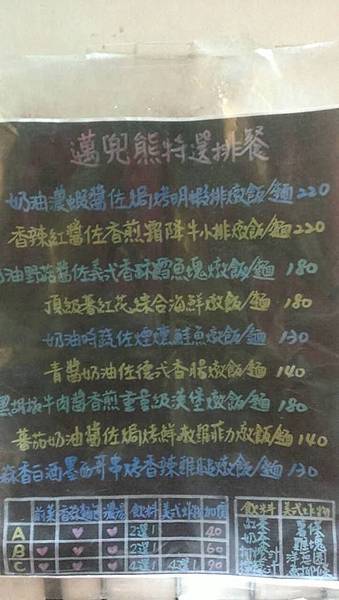 邁兜熊特選排餐
奶油濃蝦醬佐焗烤明蝦排燉飯/麵220
香辣紅醬佐香煎霜降牛小排燉飯/麵220
奶油野菇醬佐義式香酥鱈魚塊燉飯/麵 180
頂級番紅花綜合海鮮燉飯/麵 180
奶油時蔬佐煙燻鮭魚燉飯/麵 130
青醬奶油佐德式香腸燉飯/麵 140
黑胡椒牛肉醬香煎重量級漢堡燉飯/麵 180
蕃茄奶油醬佐焗烤鮮嫩菲力燉飯/麵140
蒜香白酒墨西哥串烤香辣雞腿燉飯/麵130
前菜 濃湯 飲料 美式炸物 加價
A ♥ ♥ 2選1 40
B ♥ ♥ ♥ 2選1 60
C ♥ ♥ ♥ 4選1 4選1 90
飲料 美式炸物
紅茶 薯條
奶茶 雞塊
洋蔥圈